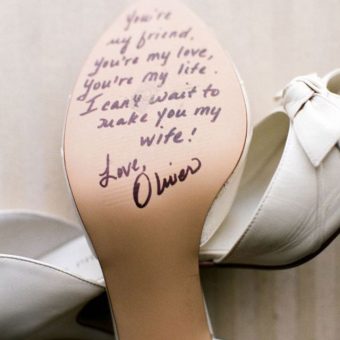 You're
my friend,
you're my love,
You're my life.
I can't wait to
make you my
wife!
Love,
Oliver